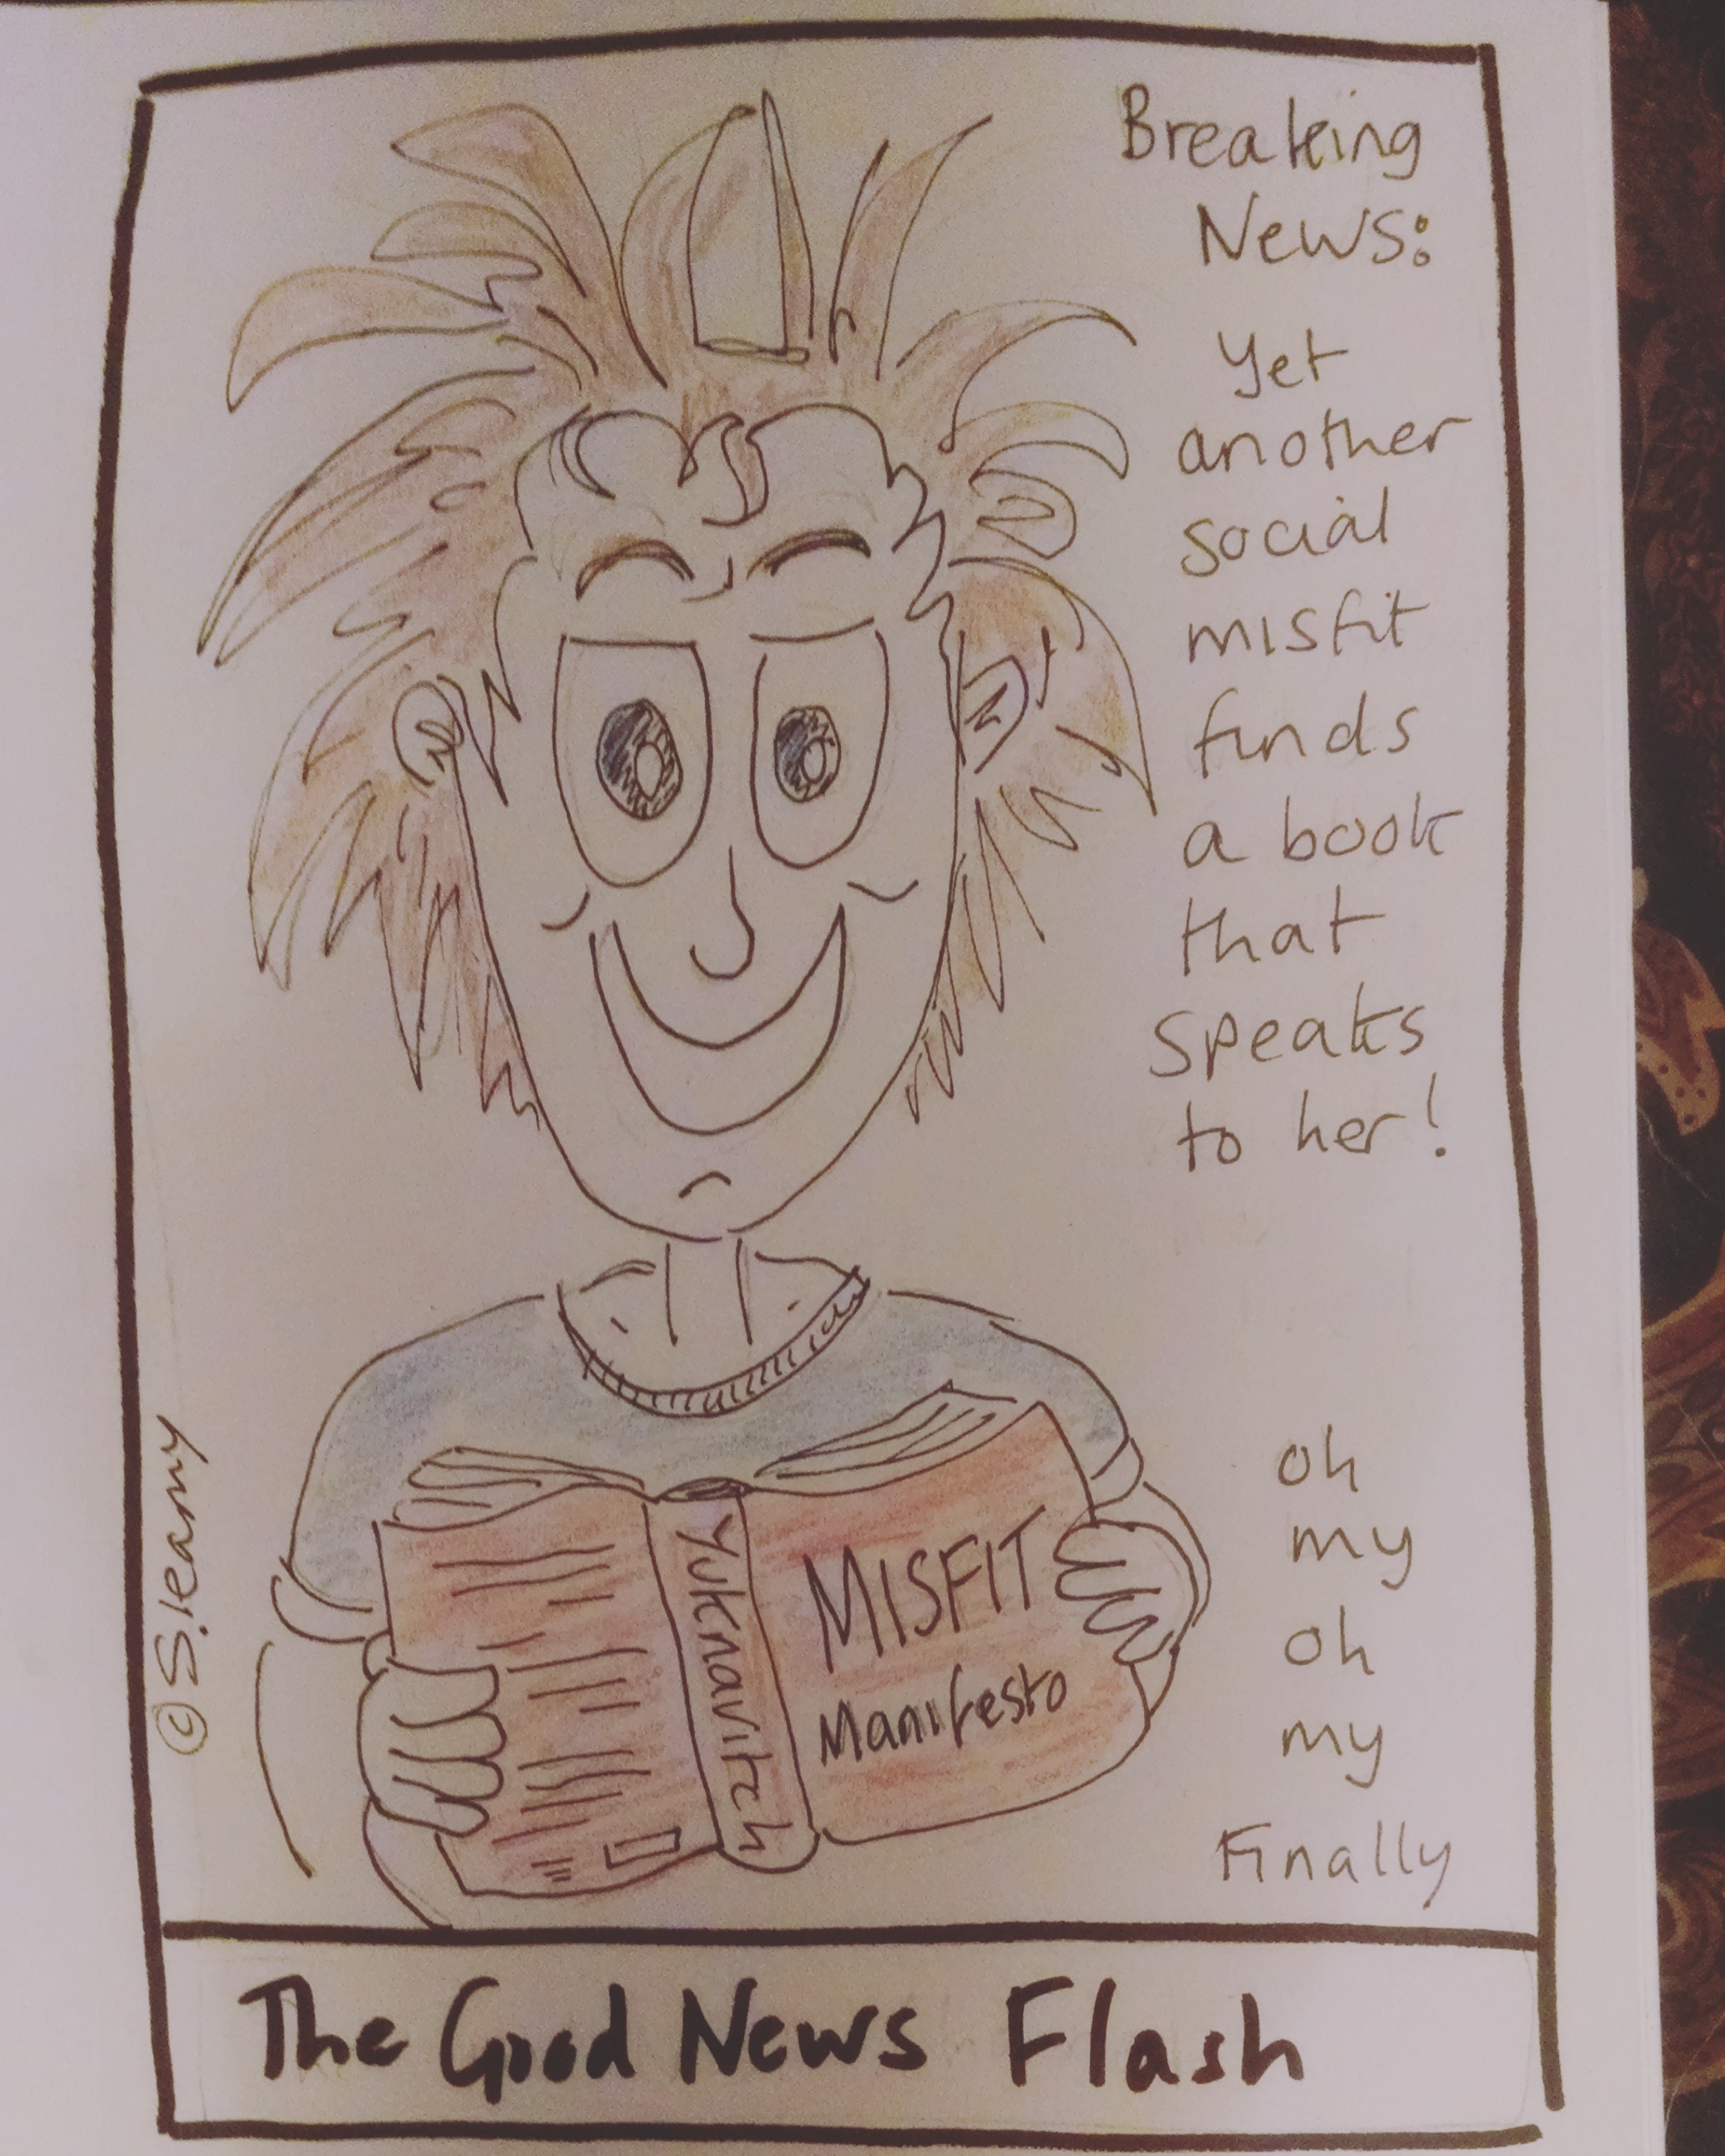 Breaking
News:
Yet
another
social
misfit
finds
a book
that
speaks
to her!
oh
my
oh
my
Finally
Yuknavitch
MISFIT
Manifesto
© S.leamy
The Good News Flash